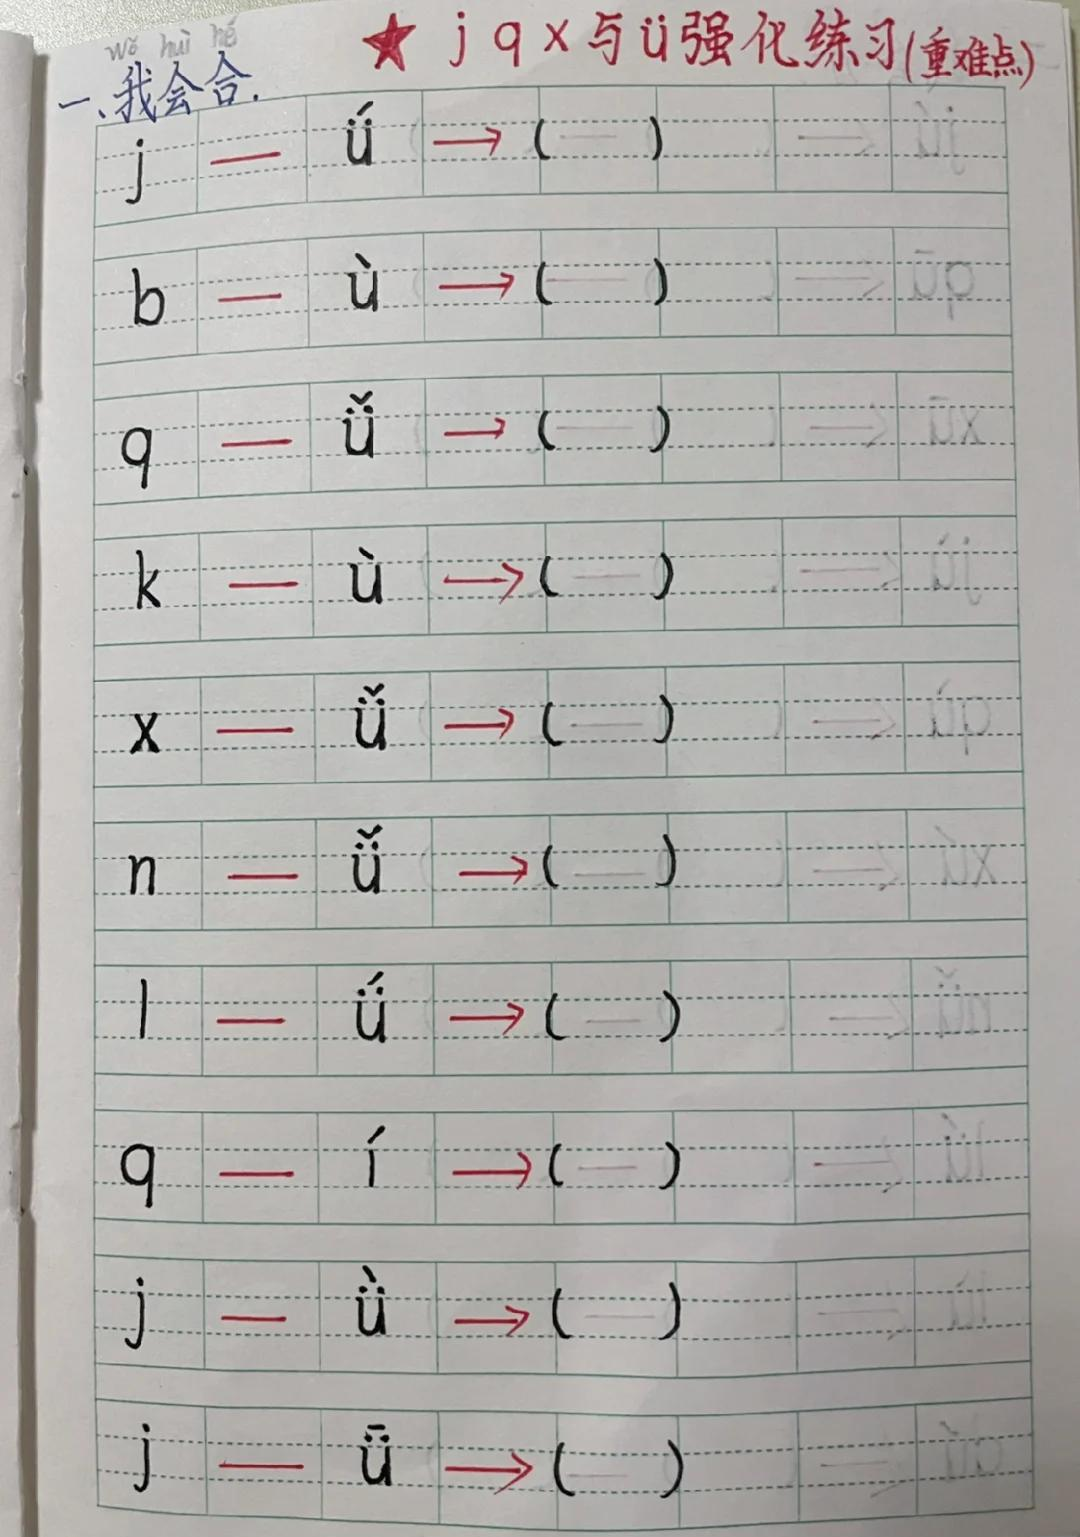 ★ j q x与ü强化练习(重难点)
wǒ huì hé
一、我会合.
j — ǘ → ( )
b — ù → ( )
q — ǚ → ( )
k — ù → ( )
x — ǚ → ( )
n — ǚ → ( )
l — ǘ → ( )
q — í → ( )
j — ǜ → ( )
j — ǖ → ( )